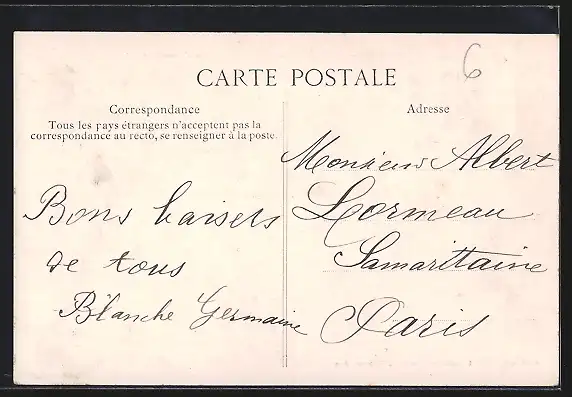 6
CARTE POSTALE
Correspondance
Tous les pays étrangers n'acceptent pas la
correspondance au recto, se renseigner à la poste.
Bons baisers
de tous
Blanche Germaine
Adresse
Monsieur Albert
Lormeau
Samarittaine
Paris